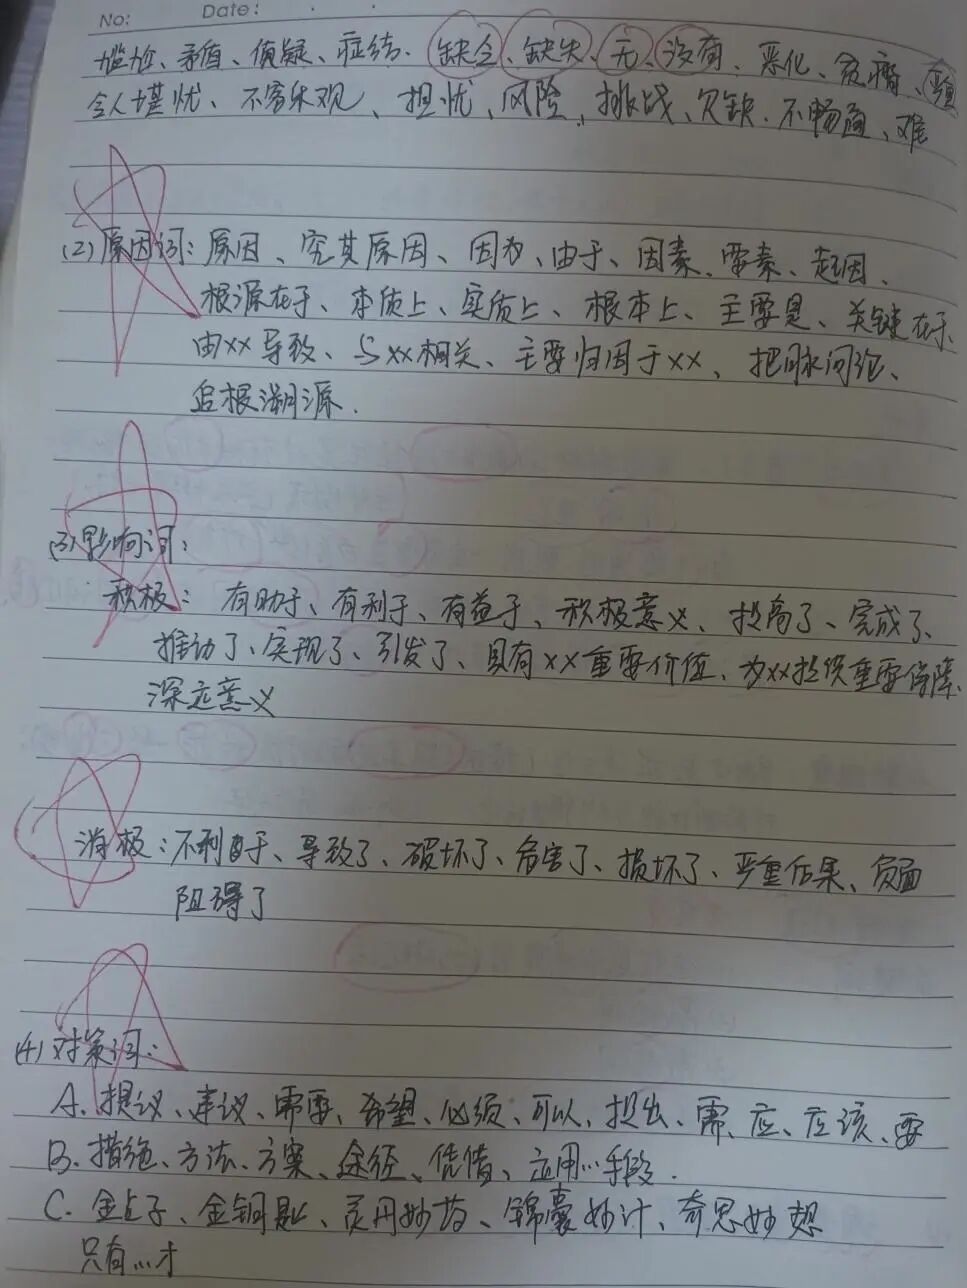 No:          Date:    ·    ·
尴尬、矛盾、质疑、症结、缺乏、缺失、无、没有、恶化、贫瘠、
令人堪忧、不容乐观、担忧、风险、挑战、欠缺、不畅通、难
(2)原因词:原因、究其原因、因为、由于、因素、要素、起因、
根源在于、本质上、实质上、根本上、主要是、关键在于、
由××导致、与××相关、主要归因于××、把脉问诊、
追根溯源.
(3)影响词:
积极:有助于、有利于、有益于、积极意义、提高了、完成了、
推动了、实现了、引发了、具有××重要价值、为××提供重要保障、
深远意义
消极:不利于、导致了、破坏了、危害了、损坏了、严重后果、负面
阻碍了
(4)对策词:
A.提议、建议、需要、希望、必须、可以、提出、需、应、应该、要
B.措施、方法、方案、途径、凭借、应用…手段.
C.金点子、金钥匙、灵丹妙药、锦囊妙计、奇思妙想
只有…才